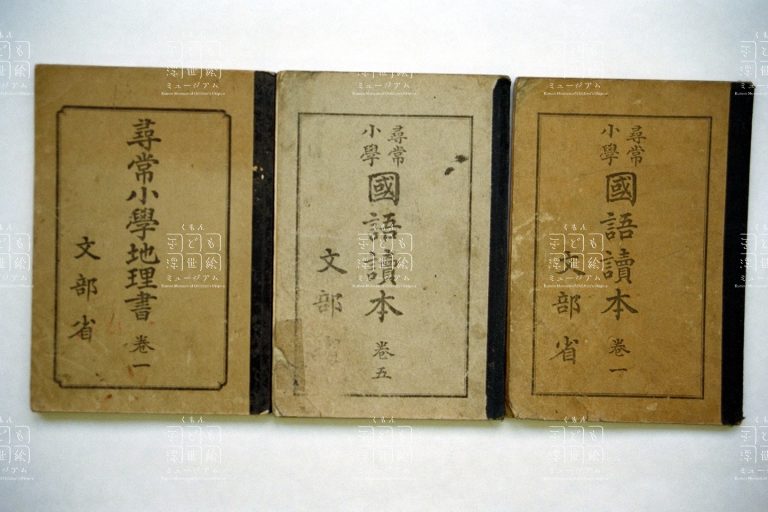 尋常小學地理書 卷一
文部省
尋常
小學
國語讀本 卷五
文部
尋常
小學
國語讀本 卷一
文部省
くもん
子ども
浮世絵
ミュージアム